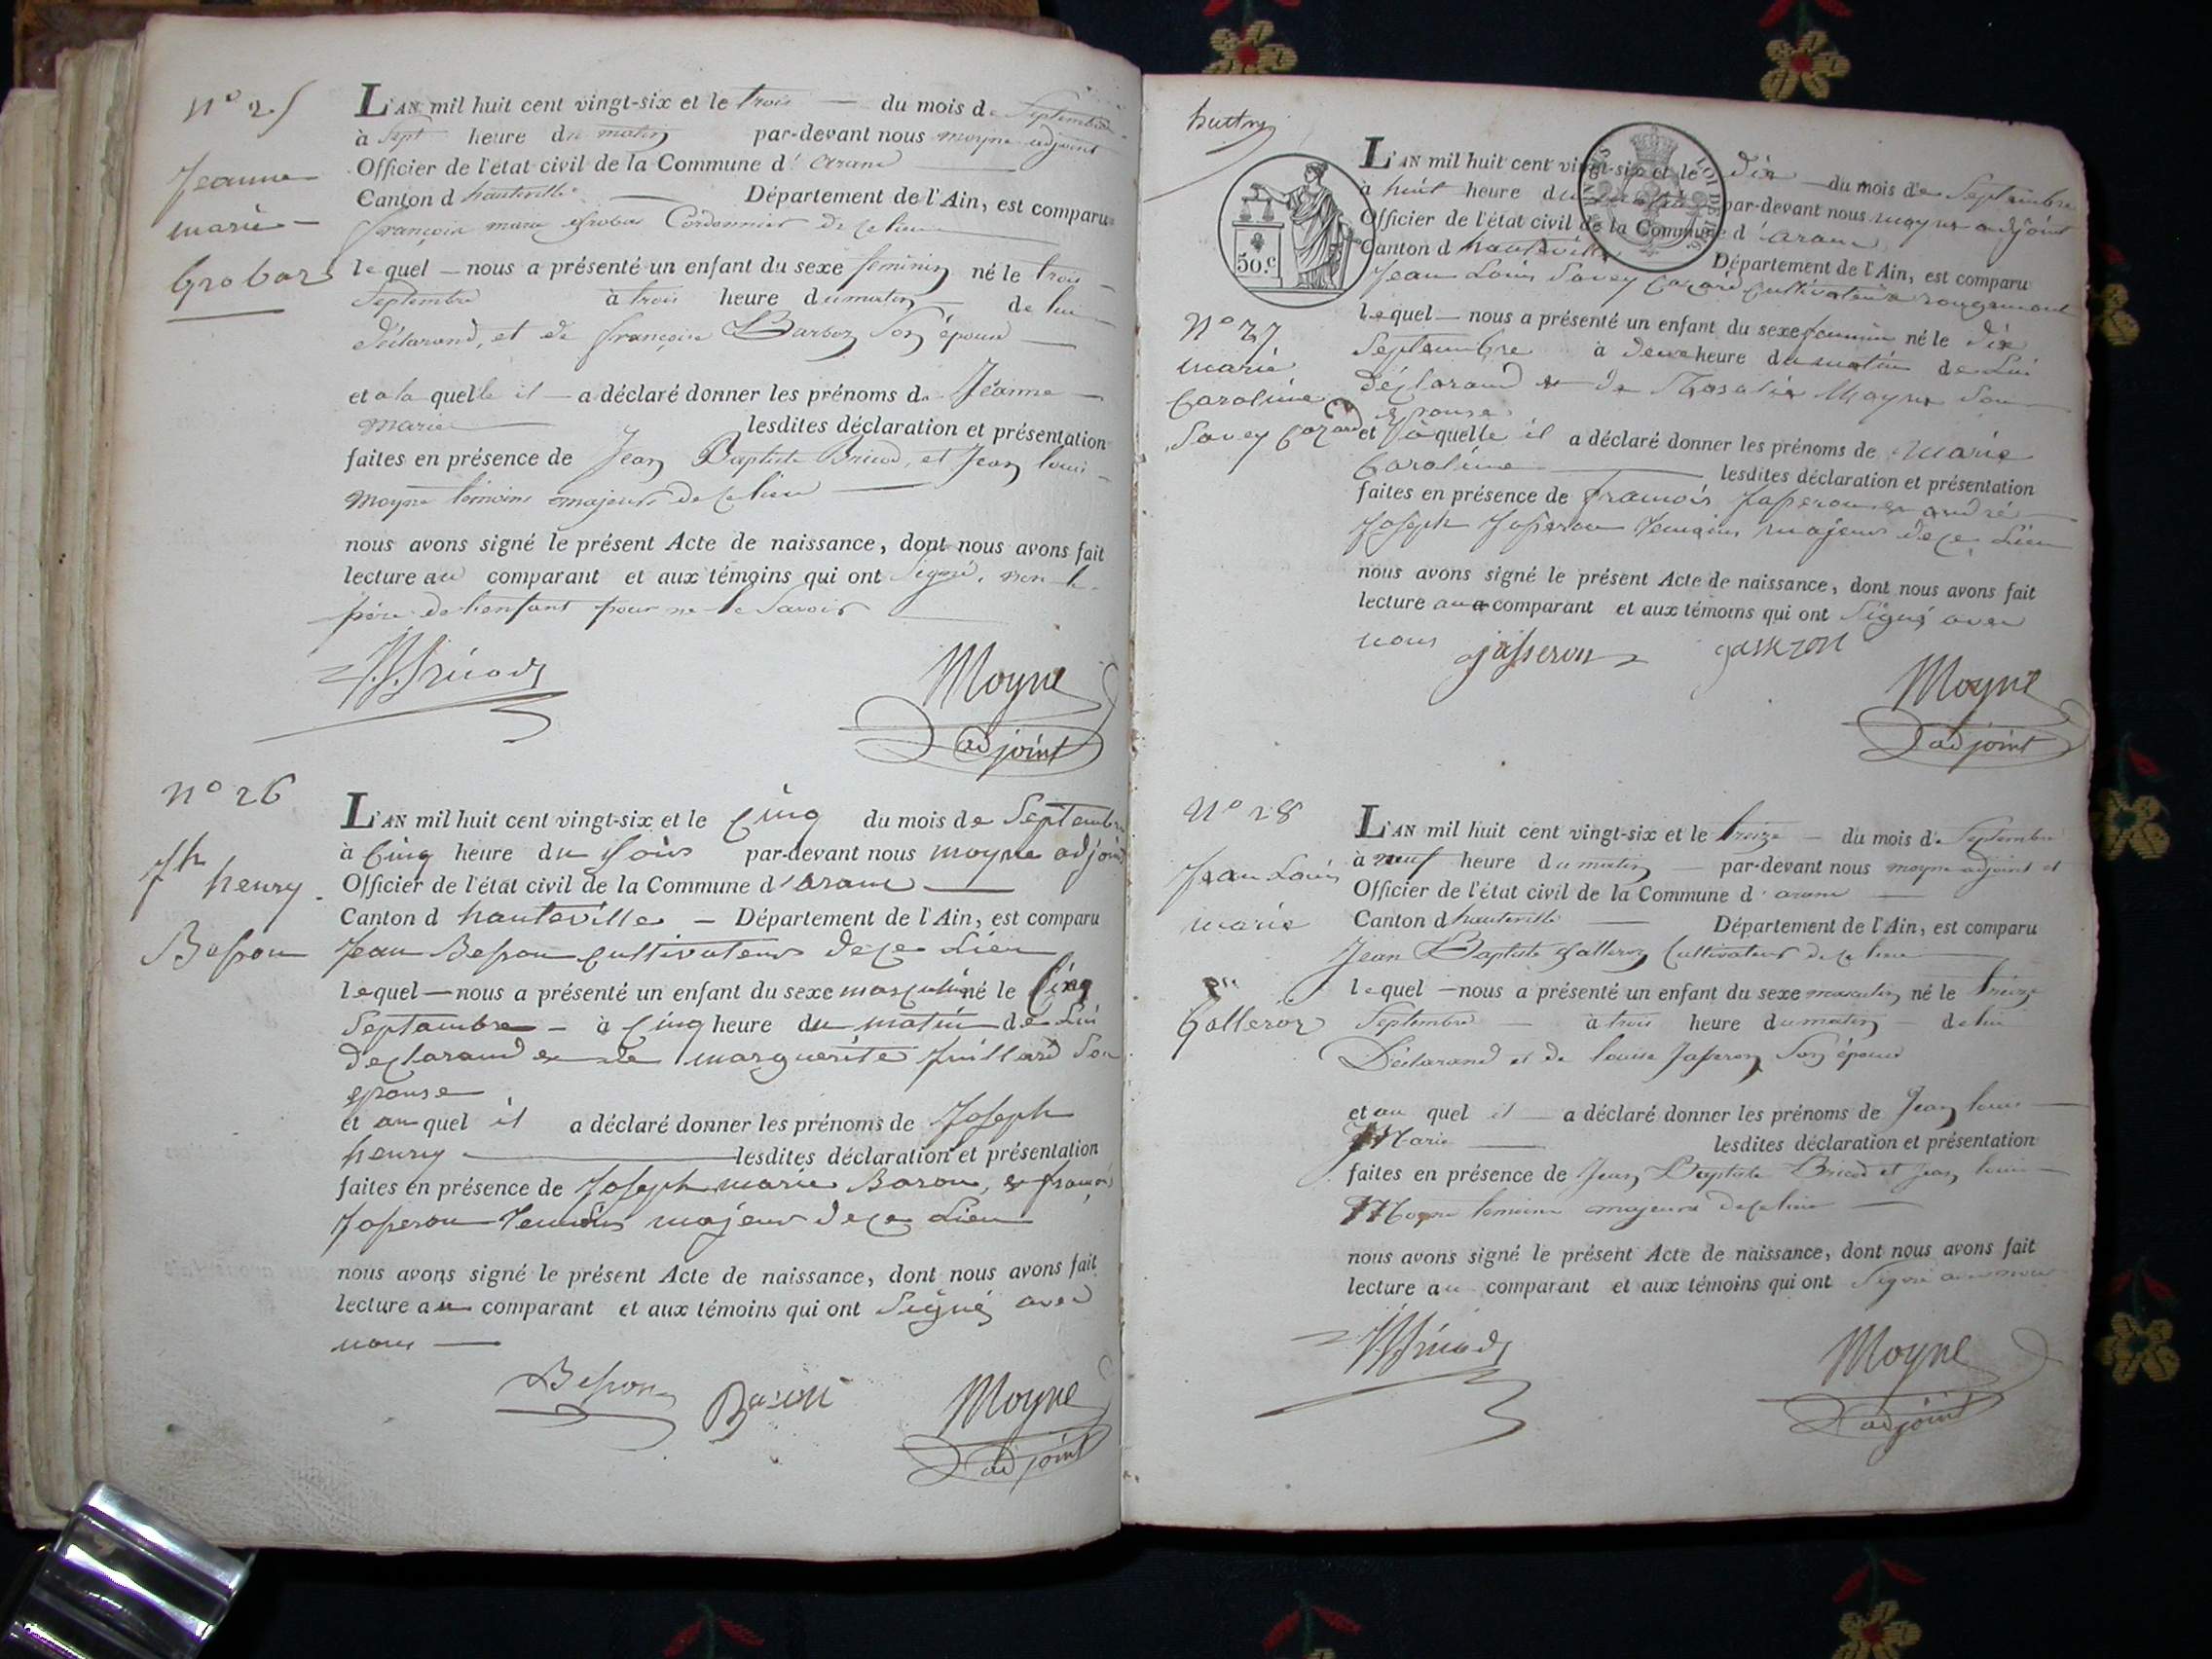 N° 25
Jeanne
marie
Grobas
L'AN mil huit cent vingt-six et le trois du mois de Septembre
à Sept heure du matin par-devant nous moyne adjoint
Officier de l'état civil de la Commune d' aranc
Canton d hauteville Département de l'Ain, est comparu
françois marie Grobas Cordonnier de ce lieu
lequel nous a présenté un enfant du sexe feminin né le trois
Septembre à trois heure du matin de lui
déclarand, et de françoise son épouse
et a la quelle il a déclaré donner les prénoms de Jeanne
marie lesdites déclaration et présentation
faites en présence de Jean Baptiste Bricod, et Jean louis
moyne témoins majeurs de ce lieu
nous avons signé le présent Acte de naissance, dont nous avons fait
lecture au comparant et aux témoins qui ont Signé, non le
père de lenfant pour ne le Savoir
Moyne
adjoint
N° 26
Jh
henry
Besson
L'AN mil huit cent vingt-six et le Cinq du mois de Septembre
à Cinq heure du Soir par-devant nous moyne adjoint
Officier de l'état civil de la Commune d'aranc
Canton d hauteville Département de l'Ain, est comparu
Jean Besson Cultivateur de ce Lieu
lequel nous a présenté un enfant du sexe masculin né le Cinq
Septembre à Cinq heure du matin de Lui
declarand et de marguerite Juillard Son
epouse
et au quel il a déclaré donner les prénoms de Joseph
henry lesdites déclaration et présentation
faites en présence de Joseph marie Baron, et françois
Jasseron Temoins majeurs de ce Lieu
nous avons signé le présent Acte de naissance, dont nous avons fait
lecture au comparant et aux témoins qui ont Signés avec
nous
Besson Baron Moyne
adjoint
LOI DE 1816
50.c
N° 27
marie
Caroline
Savey Cazard
L'AN mil huit cent vingt-six et le dix du mois de Septembre
à huit heure du par-devant nous moyne adjoint
Officier de l'état civil de la Commune d aranc
Canton d hauteville Département de l'Ain, est comparu
Jean Louis Savey Cazard Cultivateur a rougemont
lequel nous a présenté un enfant du sexe feminin né le dix
Septembre à deux heure du matin de Lui
déclarand et de Rosalie Moyne Son
epouse
et à quelle il a déclaré donner les prénoms de Marie
Caroline lesdites déclaration et présentation
faites en présence de françois Jasseron et andré
Joseph Jasseron Temoins majeurs de ce Lieu
nous avons signé le présent Acte de naissance, dont nous avons fait
lecture aux comparant et aux témoins qui ont Signés avec
nous jasseron
Moyne
adjoint
N° 28
Jean Louis
marie
Galleroz
L'AN mil huit cent vingt-six et le treize du mois de Septembre
à neuf heure du matin par-devant nous moyne adjoint et
Officier de l'état civil de la Commune d' aranc
Canton d hauteville Département de l'Ain, est comparu
Jean Baptiste Cultivateur de ce lieu
lequel nous a présenté un enfant du sexe masculin né le treize
Septembre à trois heure du matin de lui
Déclarand et de louise Jasseron Son épouse
et au quel il a déclaré donner les prénoms de Jean louis
Marie lesdites déclaration et présentation
faites en présence de Jean Baptiste Bricod et Jean louis
Moyne temoins majeurs de ce lieu
nous avons signé le présent Acte de naissance, dont nous avons fait
lecture au comparant et aux témoins qui ont Signé avec nous
Moyne
adjoint